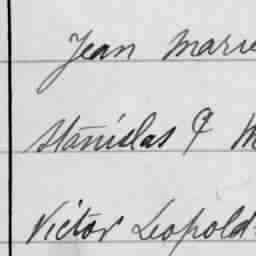 Jean Marie
Stanislas &
Victor Leopold